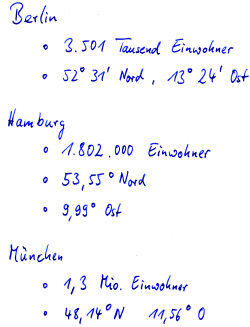 Berlin
• 3.501 Tausend Einwohner
• 52° 31' Nord, 13° 24' Ost
Hamburg
• 1.802.000 Einwohner
• 53,55° Nord
• 9,99° Ost
München
• 1,3 Mio. Einwohner
• 48,14° N 11,56° O